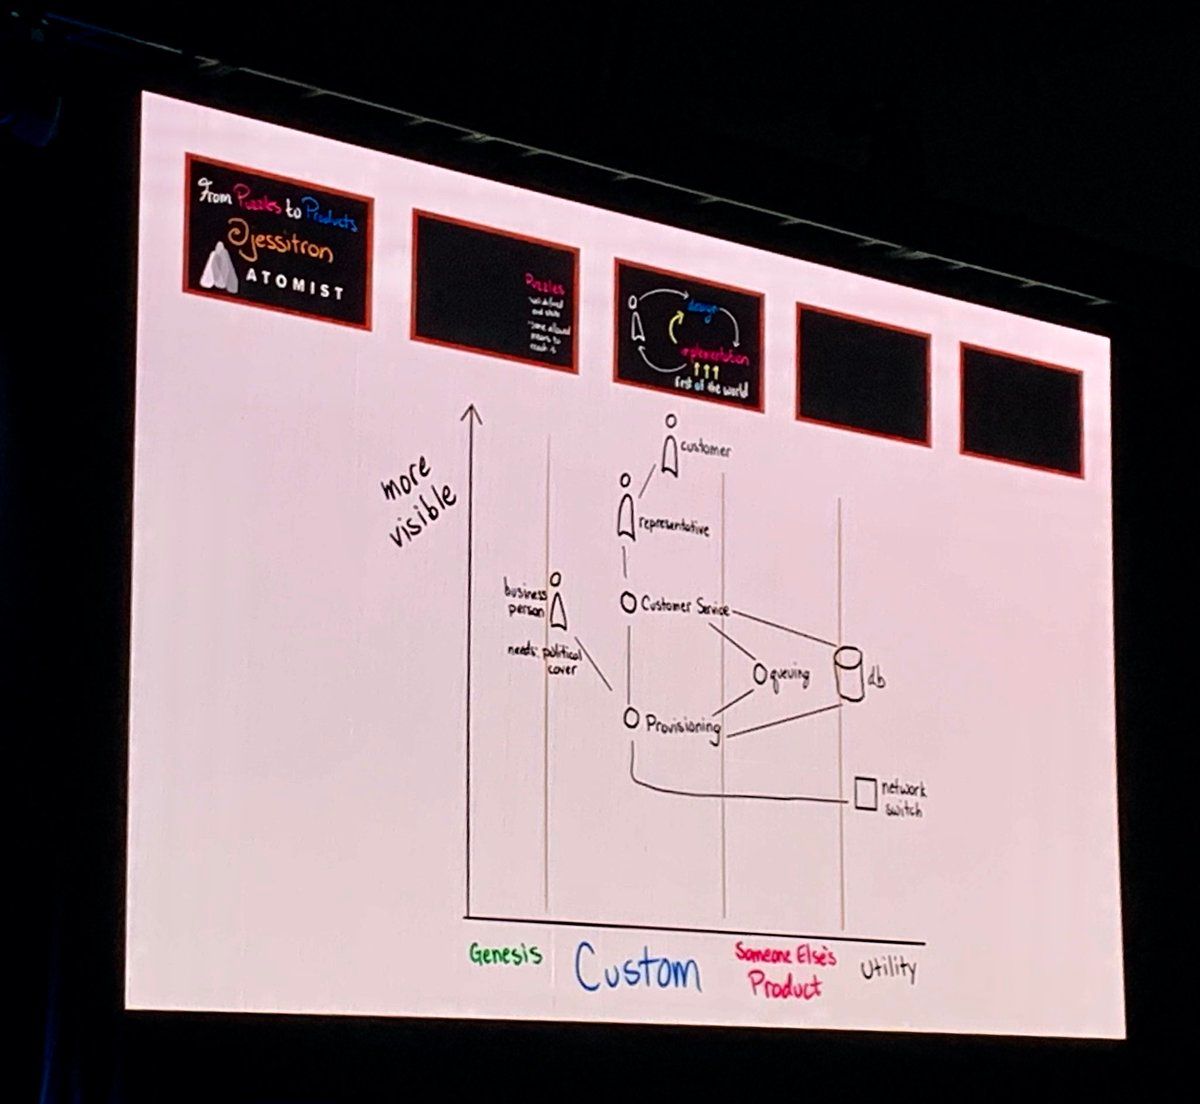 From Puzzles to Products
@jessitron
ATOMIST
Puzzles
well-defined
end state
some allowed
means to
reach it
design
implementation
rest of the world
more
visible
customer
representative
business
person
needs: political
cover
Customer Service
queuing
db
Provisioning
network
switch
Genesis
Custom
Someone Else's
Product
Utility